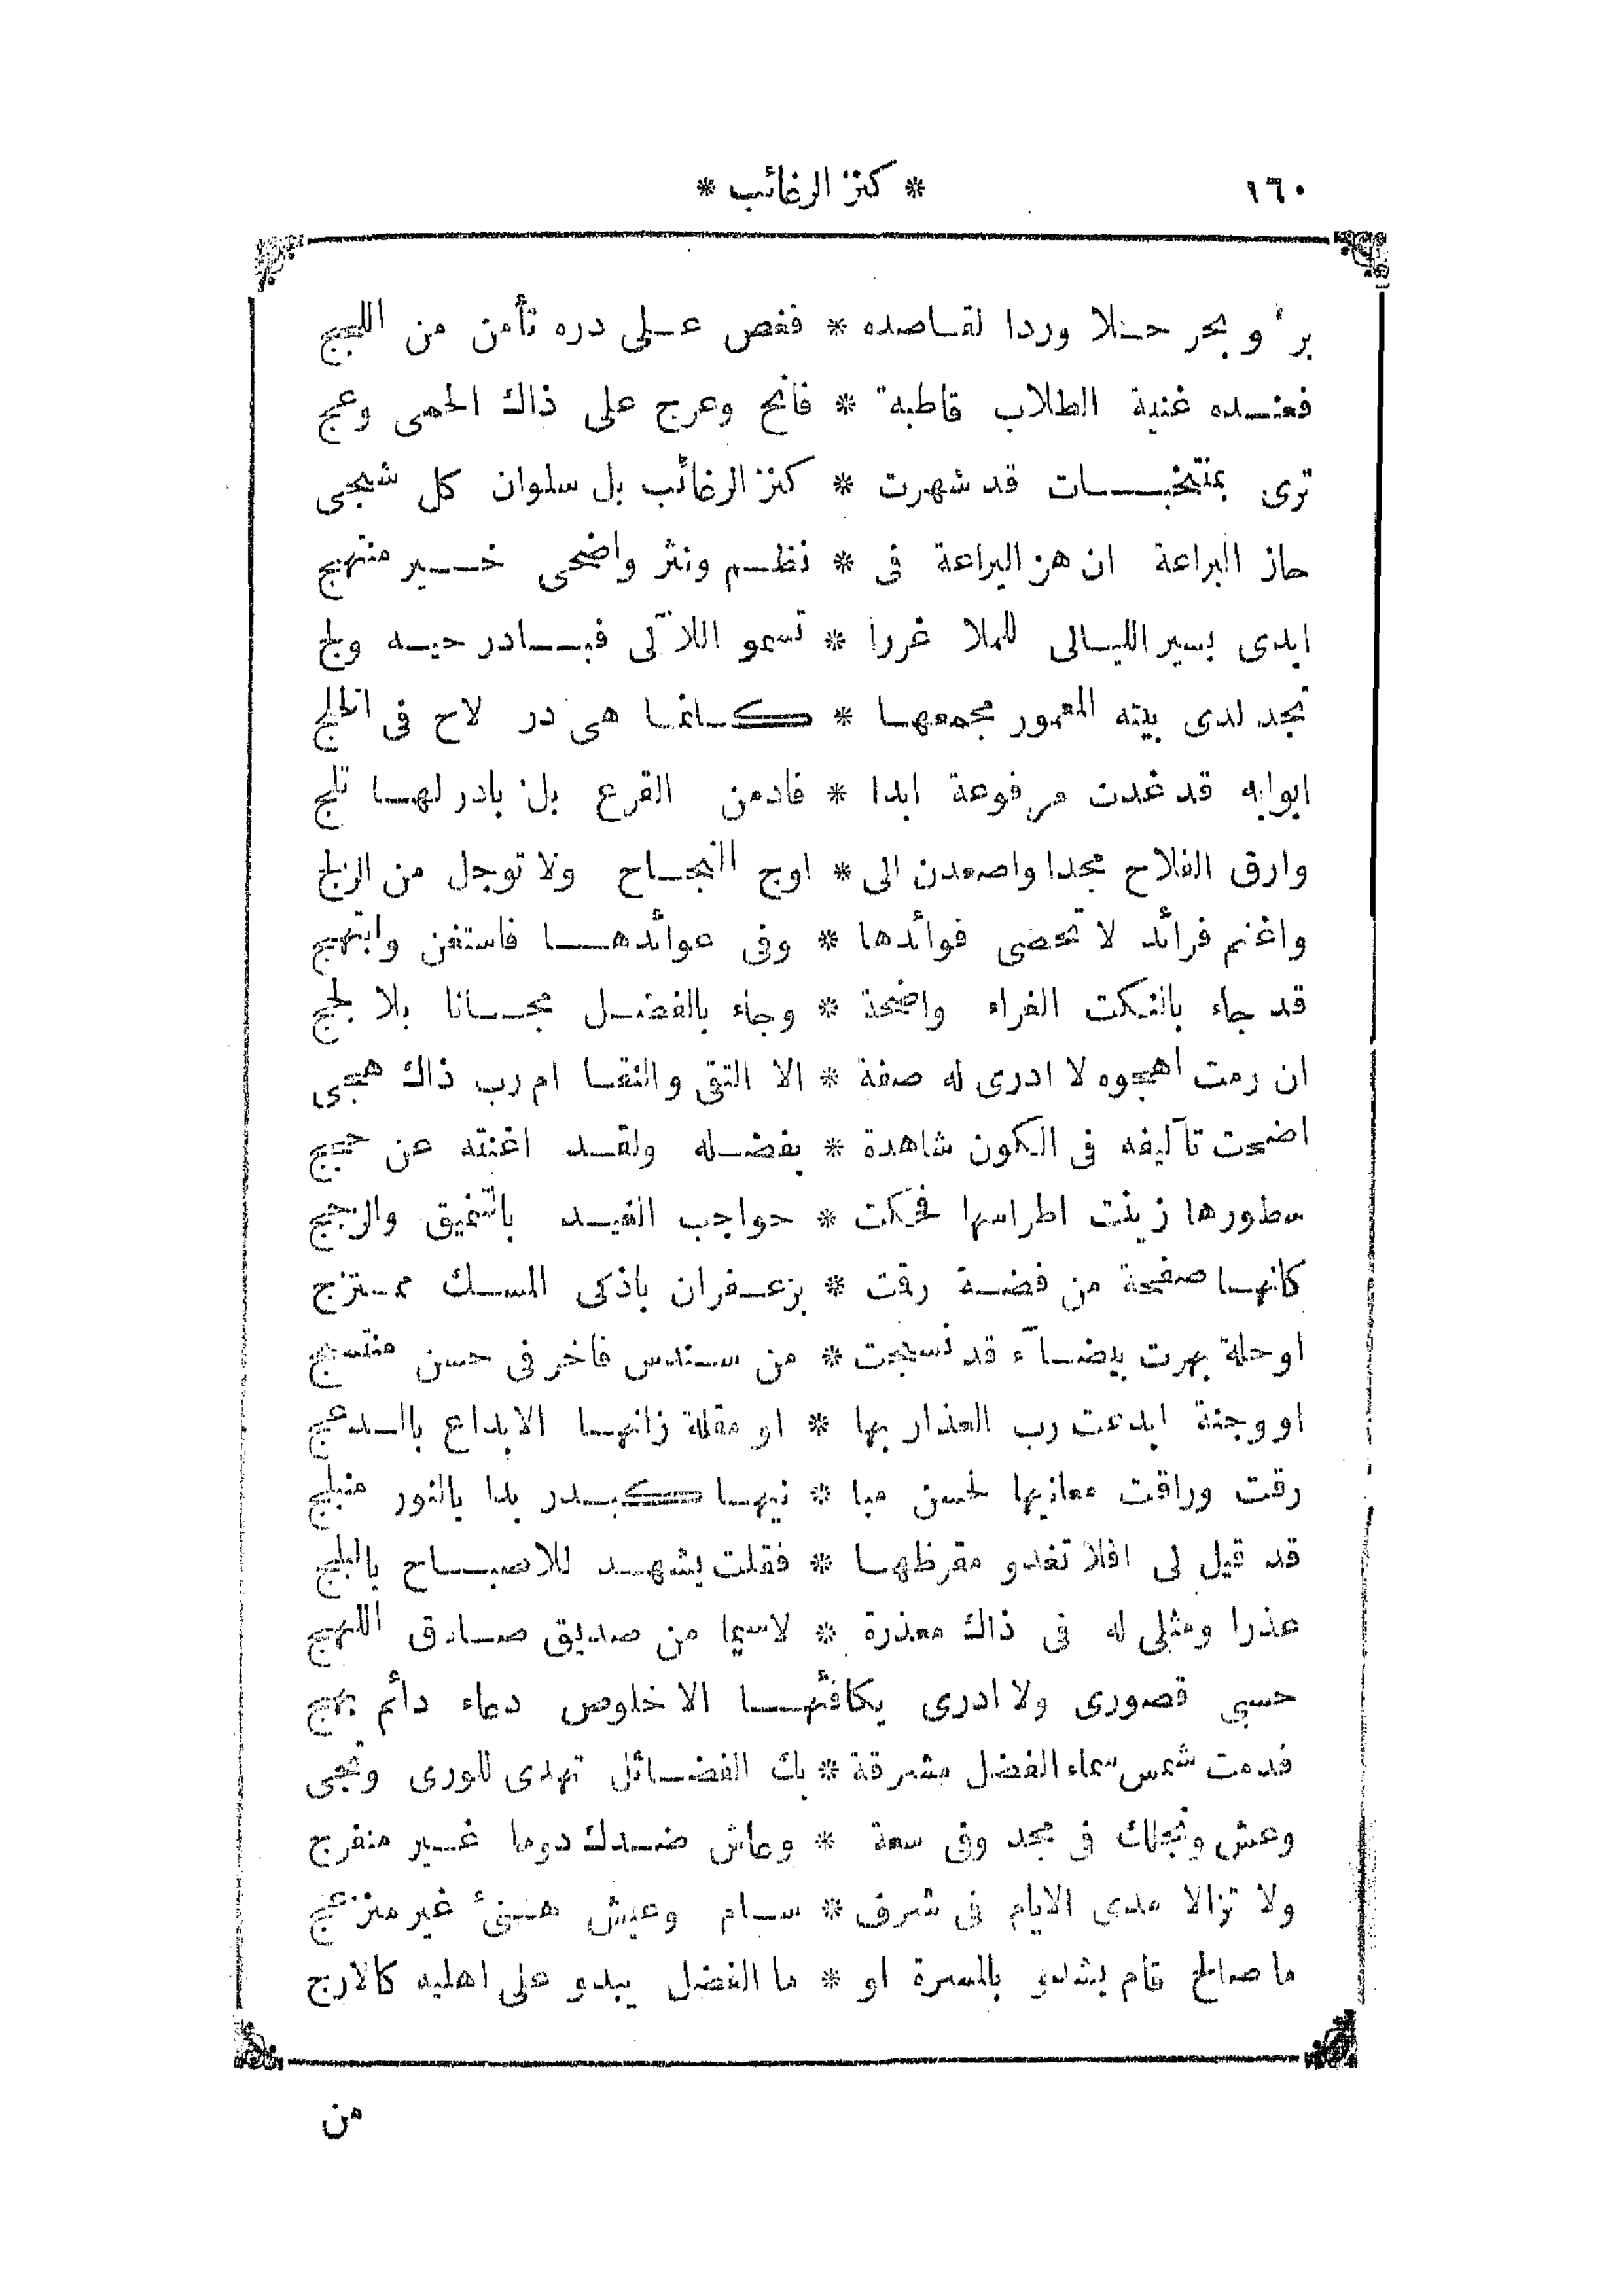 ١٦٠ * كنز الرغائب *
بر و بحر حلا وردا لقاصده * فغص على دره تأمن من اللجج
فعنده غنية الطلاب قاطبة * فانح وعرج على ذاك الحمى وعج
ترى بمنتخبات قد شهرت * كنز الرغائب بل سلوان كل شجى
حاز البراعة ان هز اليراعة فى * نظم ونثر واضحى خير منتهج
ابدى بسير الليالى للملا غررا * تسمو اللآلى فبادر حيه ولج
تجد لدى بيته المعمور مجمعها * كانما هى در لاح فى الخلج
ابوابه قد غدت مرفوعة ابدا * فادمن القرع بل بادر لها تلج
وارق الفلاح مجدا واصعدن الى * اوج النجاح ولا توجل من الزلج
واغنم فرائد لا تحصى فوائدها * وفى عوائدها فاستغن وابتهج
قد جاء بالنكت الغراء واضحة * وجاء بالفضل مجانا بلا لجج
ان رمت اهجوه لا ادرى له صفة * الا التقى والنقا ام رب ذاك هجى
اضحت تآليفه فى الكون شاهدة * بفضله ولقد اغنته عن حجج
سطورها زينت اطراسها فحكت * حواجب الغيد بالتنميق والزجج
كانها صفحة من فضة رقت * بزعفران باذكى المسك ممتزج
او حلة بهرت بيضآء قد نسجت * من سندس فاخر فى حسن منتسج
او وجنة ابدعت رب العذار بها * او مقلة زانها الابداع بالدعج
رقت وراقت معانيها لحسن مبا * نيها كبدر بدا بالنور منبلج
قد قيل لى افلا تغدو مقرظها * فقلت يشهد للاصباح بالبلج
عذرا ومثلى له فى ذاك معذرة * لاسيما من صديق صادق اللهج
حسبى قصورى ولا ادرى يكافئها الا خلوص دعاء دائم بهج
فدمت شمس سماء الفضل مشرقة * بك الفضائل تهدى للورى وتجى
وعش ونجلك فى مجد وفى سعة * وعاش ضدك دوما غير منفرج
ولا تزالا مدى الايام فى شرف * سام وعيش هنئ غير منزعج
ما صالح قام يشدو بالمسرة او * ما الفضل يبدو على اهليه كالارج
من